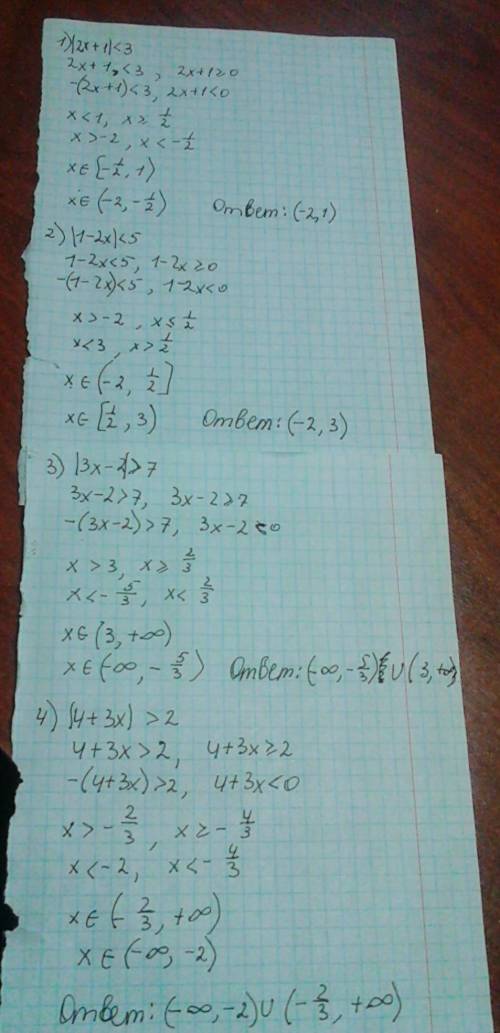 1) |2x+1|<3
2x+1<3, 2x+1≥0
-(2x+1)<3, 2x+1<0
x<1, x≥ 1/2
x>-2, x<-1/2
x∈[-1/2, 1)
x∈(-2, -1/2) Ответ: (-2,1)
2) |1-2x|<5
1-2x<5, 1-2x≥0
-(1-2x)<5, 1-2x<0
x>-2, x≤ 1/2
x<3, x> 1/2
x∈(-2, 1/2]
x∈[1/2, 3) Ответ: (-2, 3)
3) |3x-2|>7
3x-2>7, 3x-2≥7
-(3x-2)>7, 3x-2<0
x>3, x≥ 2/3
x<-5/3, x< 2/3
x∈(3, +∞)
x∈(-∞, -5/3) Ответ: (-∞, -5/3) ∪ (3, +∞)
4) |4+3x|>2
4+3x>2, 4+3x≥2
-(4+3x)>2, 4+3x<0
x>-2/3, x≥-4/3
x<-2, x<-4/3
x∈(-2/3, +∞)
x∈(-∞, -2)
Ответ: (-∞, -2)∪(-2/3, +∞)